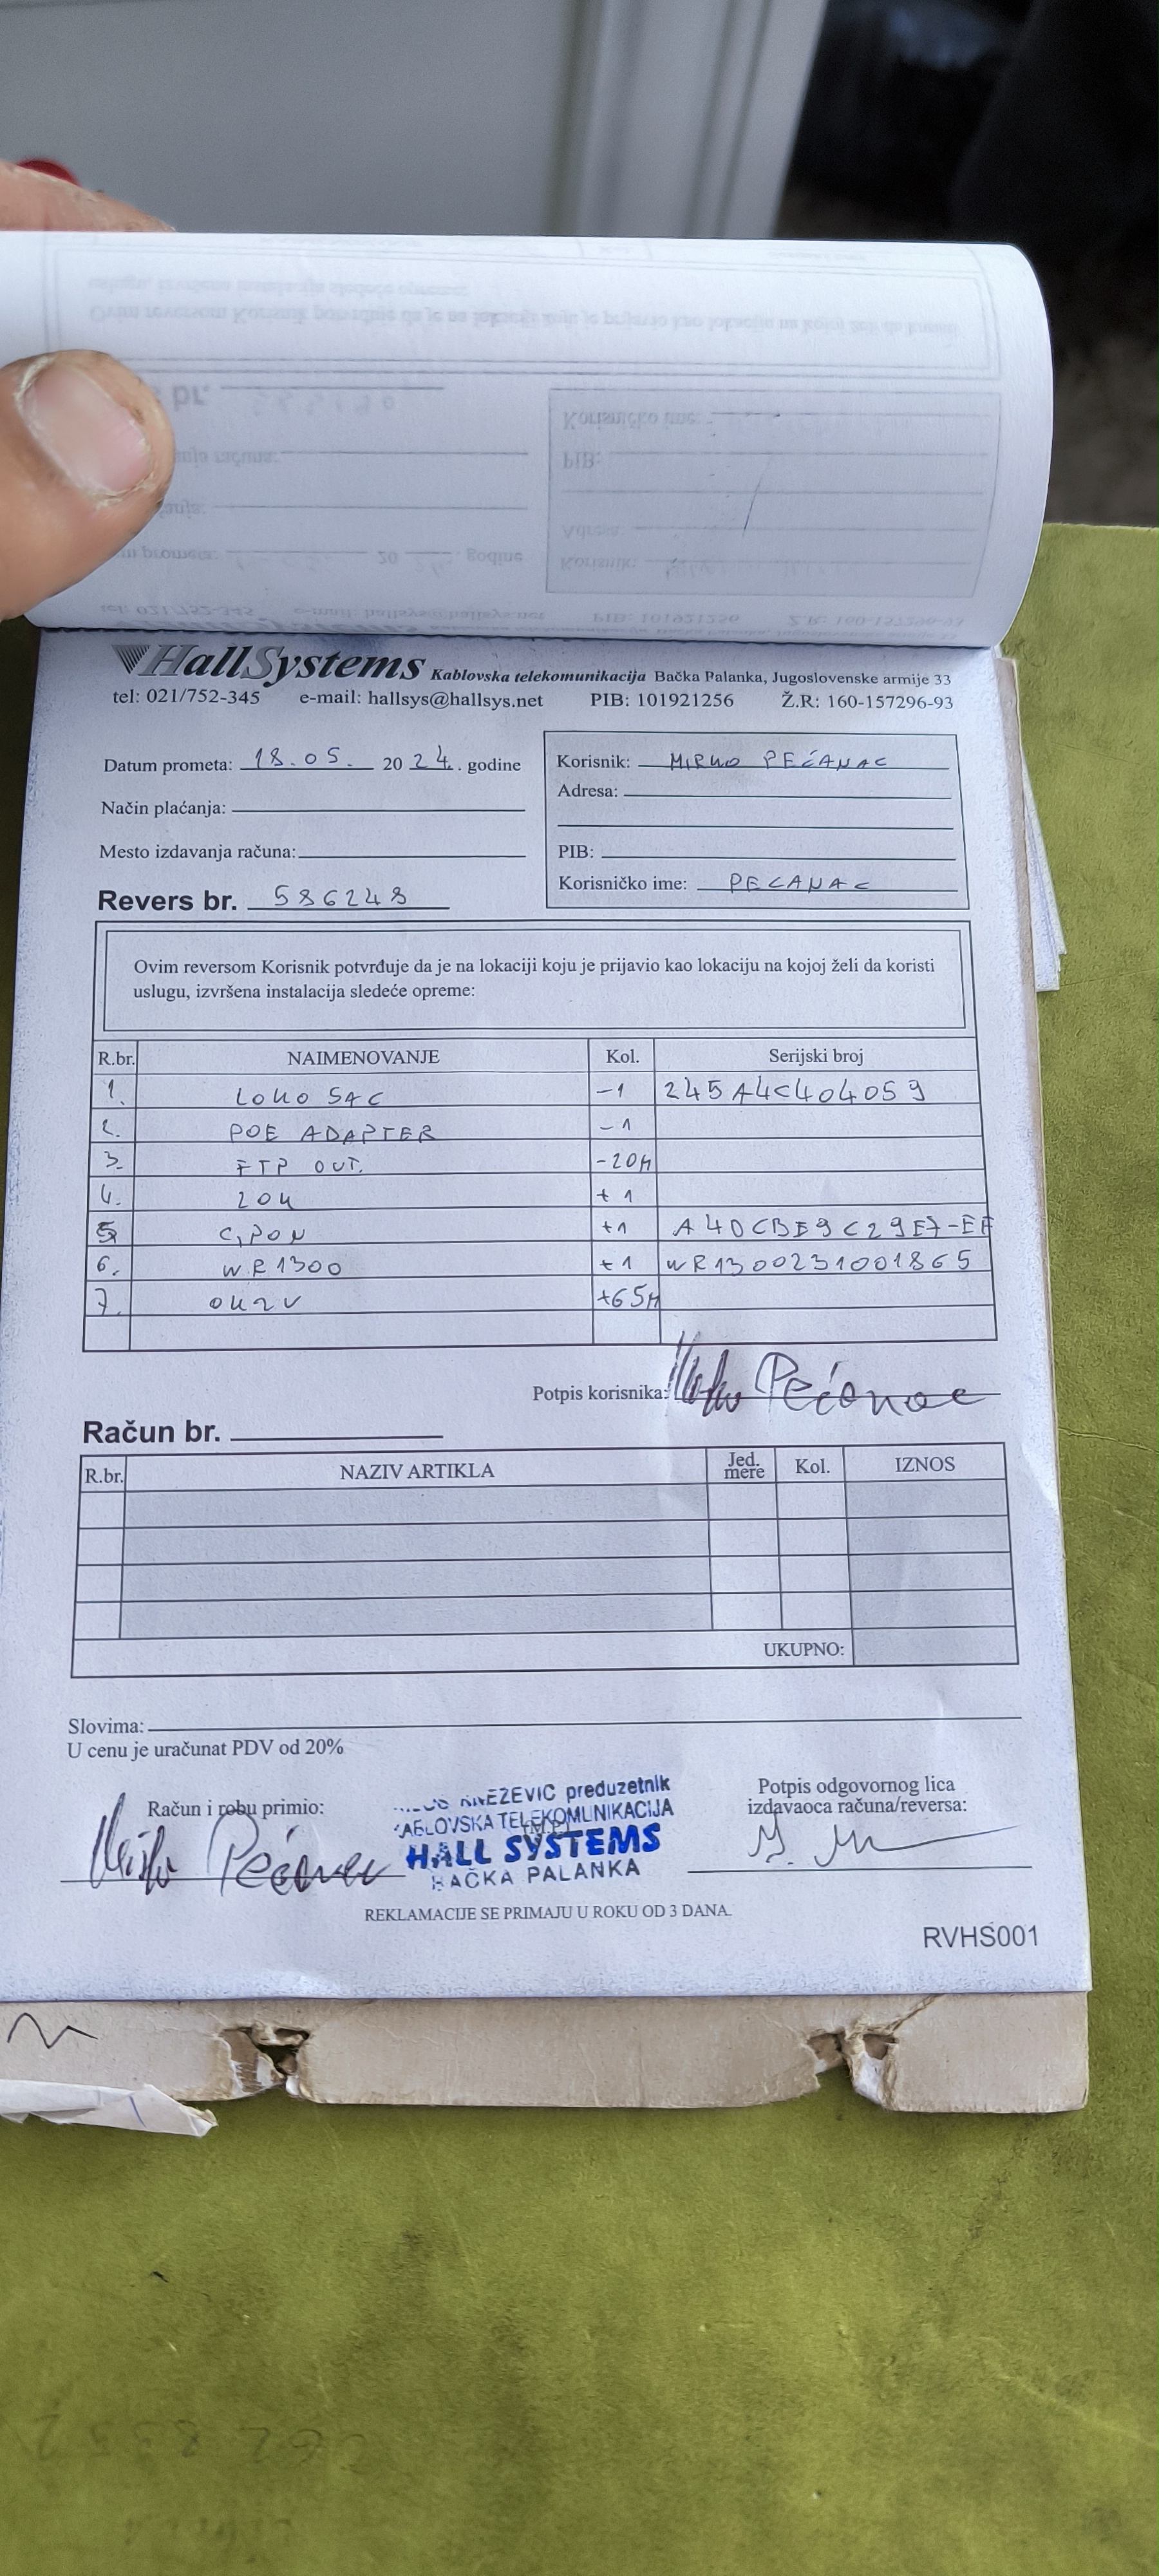 HallSystems Kablovska telekomunikacija Bačka Palanka, Jugoslovenske armije 33
tel: 021/752-345 e-mail: hallsys@hallsys.net PIB: 101921256 Ž.R: 160-157296-93
Datum prometa: 18.05. 20 24. godine
Način plaćanja:
Mesto izdavanja računa:
Revers br. 586248
Korisnik: MIRKO PEĆANAC
Adresa:
PIB:
Korisničko ime: PECANAC
Ovim reversom Korisnik potvrđuje da je na lokaciji koju je prijavio kao lokaciju na kojoj želi da koristi
uslugu, izvršena instalacija sledeće opreme:
R.br. NAIMENOVANJE Kol. Serijski broj
1. LOKO 5AC -1 245A4C404059
2. POE ADAPTER -1
3. FTP OUT. -20M
4. ZOK +1
5 GPON +1 A40CBE9C29E7-EF
6. WR1300 +1 WR1300231001865
7. OK2V +65M
Potpis korisnika: Mirko Pećanac
Račun br.
R.br. NAZIV ARTIKLA Jed. mere Kol. IZNOS
UKUPNO:
Slovima:
U cenu je uračunat PDV od 20%
Račun i robu primio:
Mirko Pećanac
KNEŽEVIĆ preduzetnik
KABLOVSKA TELEKOMUNIKACIJA
(M.P.)
HALL SYSTEMS
BAČKA PALANKA
Potpis odgovornog lica
izdavaoca računa/reversa:
REKLAMACIJE SE PRIMAJU U ROKU OD 3 DANA.
RVHS001